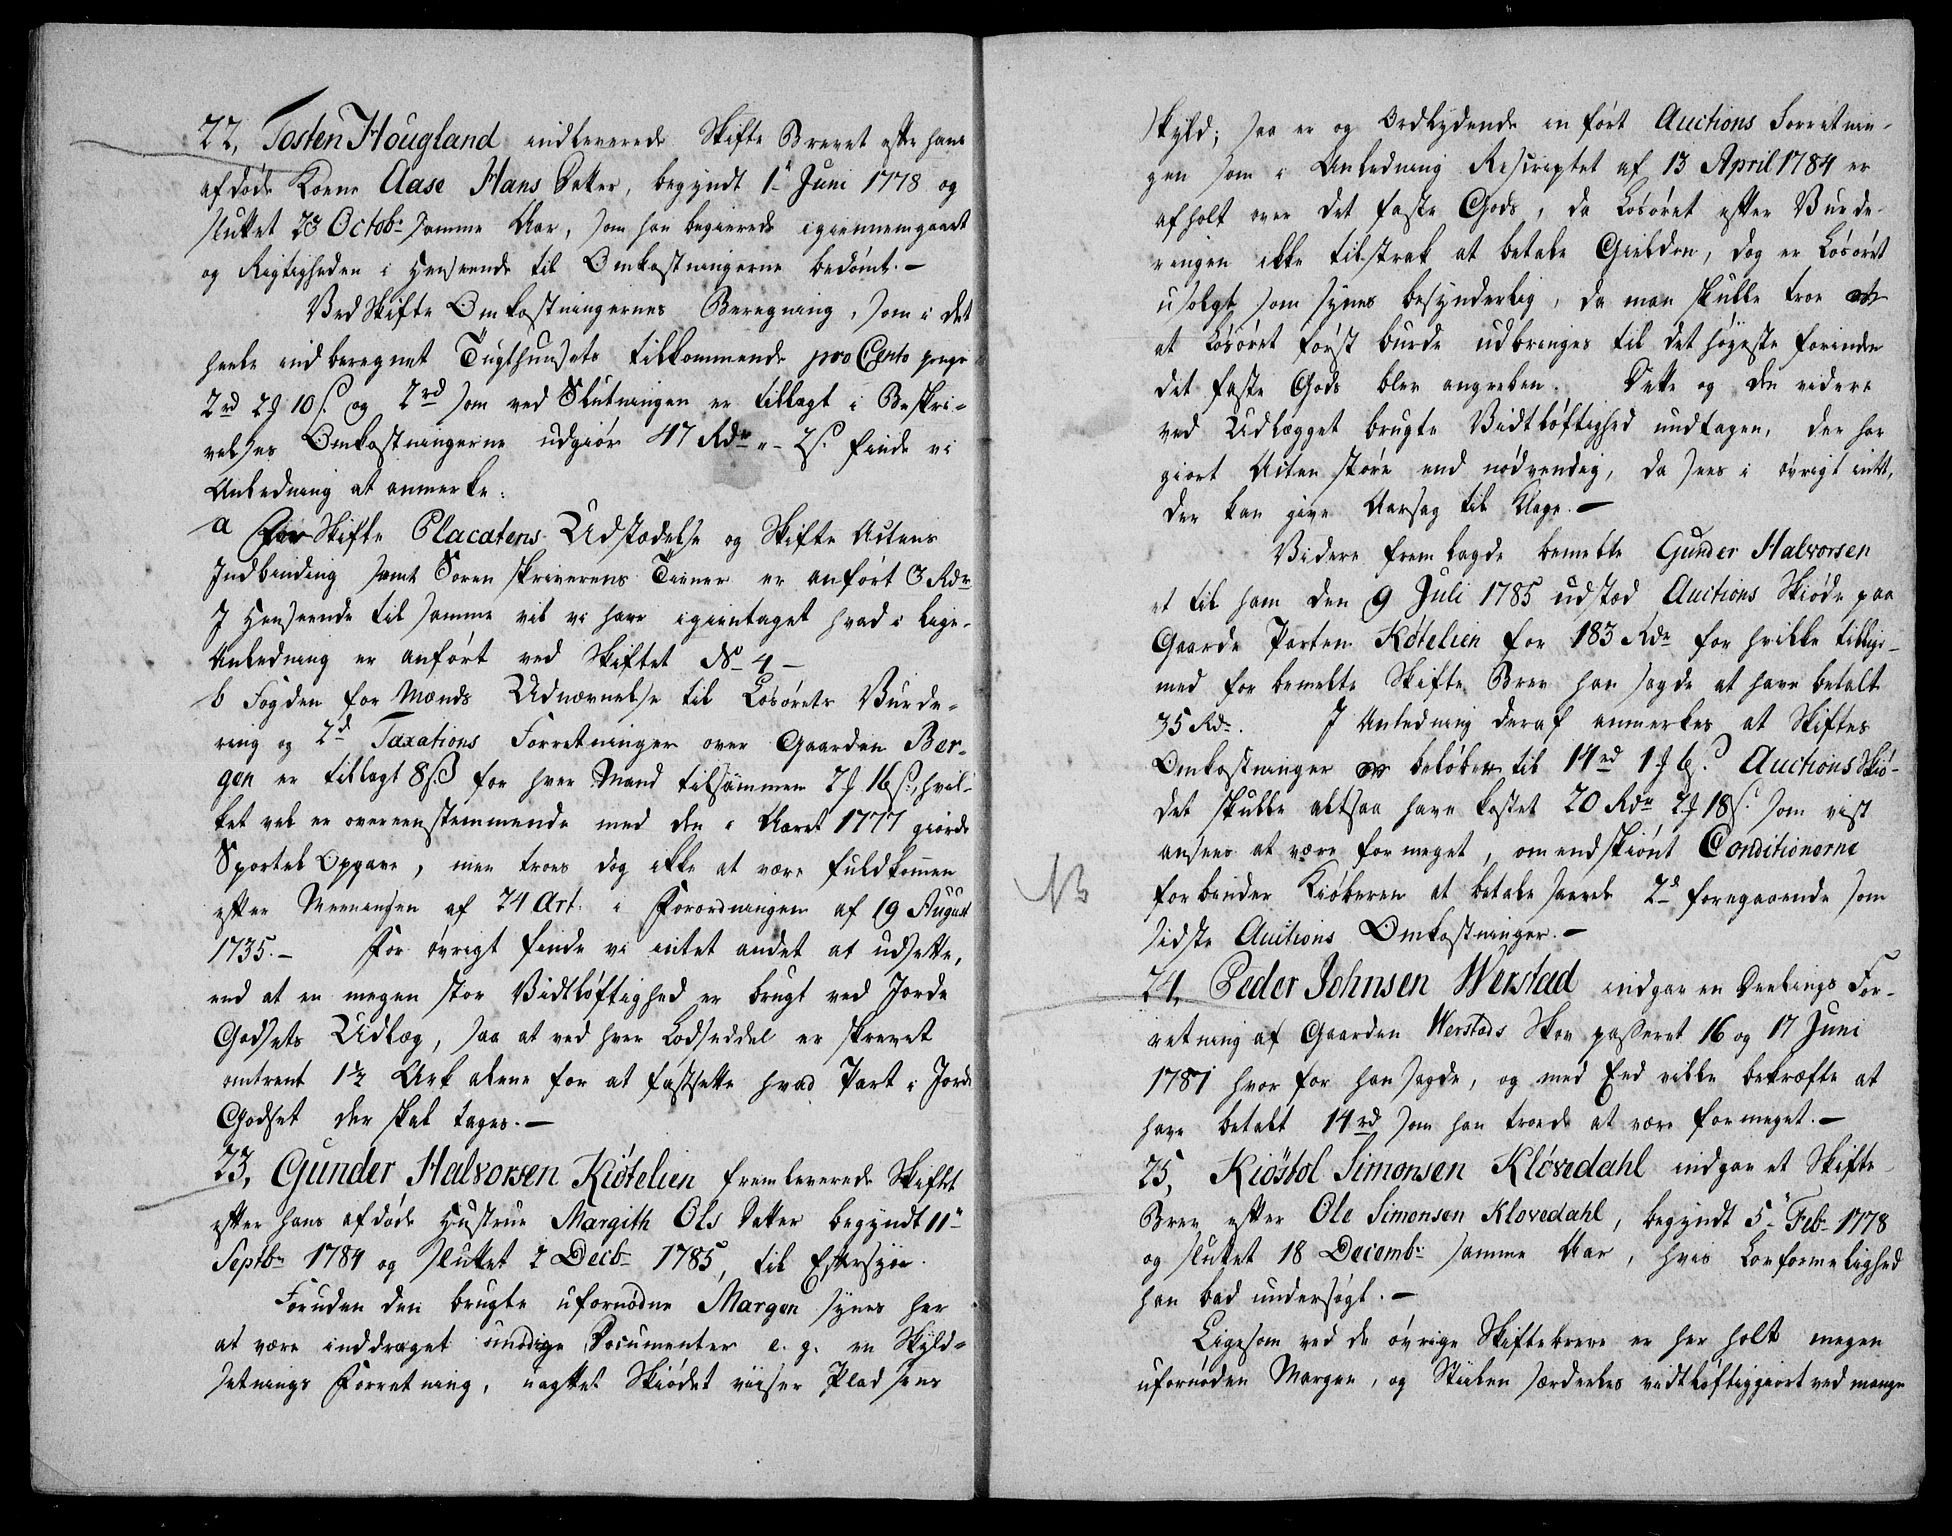 22, Tosten Hougland indleverede Skifte Brevet efter hans
afdøde Kone Aase Hans Datter, begyndt 1te Juni 1778 og
sluttet 23 Octobr samme Aar, som han begierede igiennemgaaet
og Rigtigheden i Henseende til Omkostningerne bedømt. —
Ved Skifte Omkostningernes Beregning, som i det
heele indberegnet Tugthuusets tilkommende pro Cento penge
2rd 2ƒ 10ſ. og 2rd som ved Slutningen er tillagt i Beskri-
velses Omkostningerne udgiør 47 Rdr „ - 2ſ. finde vi
Anledning at anmerke:
a For Skifte Placatens Udstædelse og Skifte Actens
Indbinding samt Soren skriverens Tiener er anført 3 Rdr
I Henseende til samme vil vi have igientaget hvad i lige-
Anledning er anført ved Skiftet No 4 —
b Fogden for Mænds Udnævnelse til Løsørets Vurde-
ring og 2d Taxations Forretninger over Gaarden Ber-
gen er tillagt 8ſs for hver Mand tilsammen 2ƒ 16ſ., hvil-
ket vel er overeenstemmende med den i Aaret 1777 giorde
Sportel Opgave, men troes dog ikke at være fuldkommen
efter Meeningen af 24 Art. i Forordningen af 19 August
1735. — For øvrigt finde vi intet andet at udsette,
end at en megen stor Vidtløftighed er brugt ved Jorde
Godsets Udlæg, saa at ved hver Lodseddel er skrevet
omtrent 1½ Ark alene for at fastsette hvad Part i Jorde
Godset der skal tages. —
23, Gunder Halvorsen Kiøtelien fremleverede Skiftet
efter hans afdøde Hustrue Margith Ols Datter begyndt 11te
Septbr 1784 og sluttet 2 Decbr 1785, til Eftersyn.
Foruden den brugte ufornødne Margen synes her
at være inddraget unødige Documenter e. g. en Skyld-
setnings Forretning, uagtet Skiødet viiser Pladsens
Skyld; saa er og Ordlydende inført Auctions Forretnin-
gen som i Anledning Rescriptet af 13 April 1784 er
afholt over det faste Gods, da Løsøret efter Vurde-
ringen ikke tilstrak at betale Gielden, dog er Løsøret
usolgt som synes besynderlig, da man skulle troe
at Løsøret først burde udbringes til det høyeste forinden
det faste Gods blev angreben. Dette og den videre
ved Udlægget brugte Vidtløftighed undtagen, der har
giort Acten større end nødvendig, da sees i øvrigt intet,
der kan give Aarsag til Klage. —
Videre fremlagde bemelte Gunder Halvorsen
et til ham den 9 Juli 1785 udstæd Auctions Skiøde paa
Gaarde Parten Køtelien for 183 Rdr for hvilke tillige-
med forbemelte Skifte Brev han sagde at have betalt
35 Rdr. I Anledning deraf anmerkes at Skiftes
Omkostninger beløber til 14rd 1ƒ 6ſ. Auctions Skiø-
det skulle altsaa have kostet 20 Rdr 2ƒ 18ſ. som vist
ansees at være formeget, omendskiønt Conditionerne
forbinder Kiøberen at betale saavel 2de foregaaende som
sidste Auctions Omkostninger. —
NB
24, Peder Johnsen Werstad indgav en Deelings For-
retning af Gaarden Werstads Skov passeret 16 og 17 Juni
1781 hvor for han sagde, og med Eed ville bekræfte at
have betalt 14rd som han troede at være formeget. —
25, Kiøstol Simonsen Kløvedahl indgav et Skifte-
Brev efter Ole Simonsen Klovedahl, begyndt 5te Feb. 1778
og sluttet 18 Decembr samme Aar, hvis Lovformelighed
han bad undersøgt. —
Ligesom ved de øvrige Skiftebreve er her holt megen
ufornøden Margen, og Stiilen særdeles vidtløftiggiort ved mange